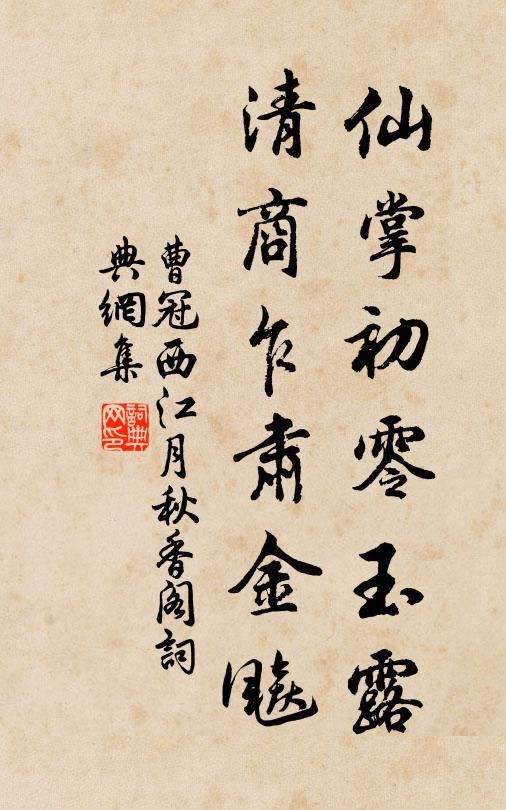 仙掌初零玉露
清商乍肃金飚
曹冠西江月秋香阁词
典網集
詞典網印